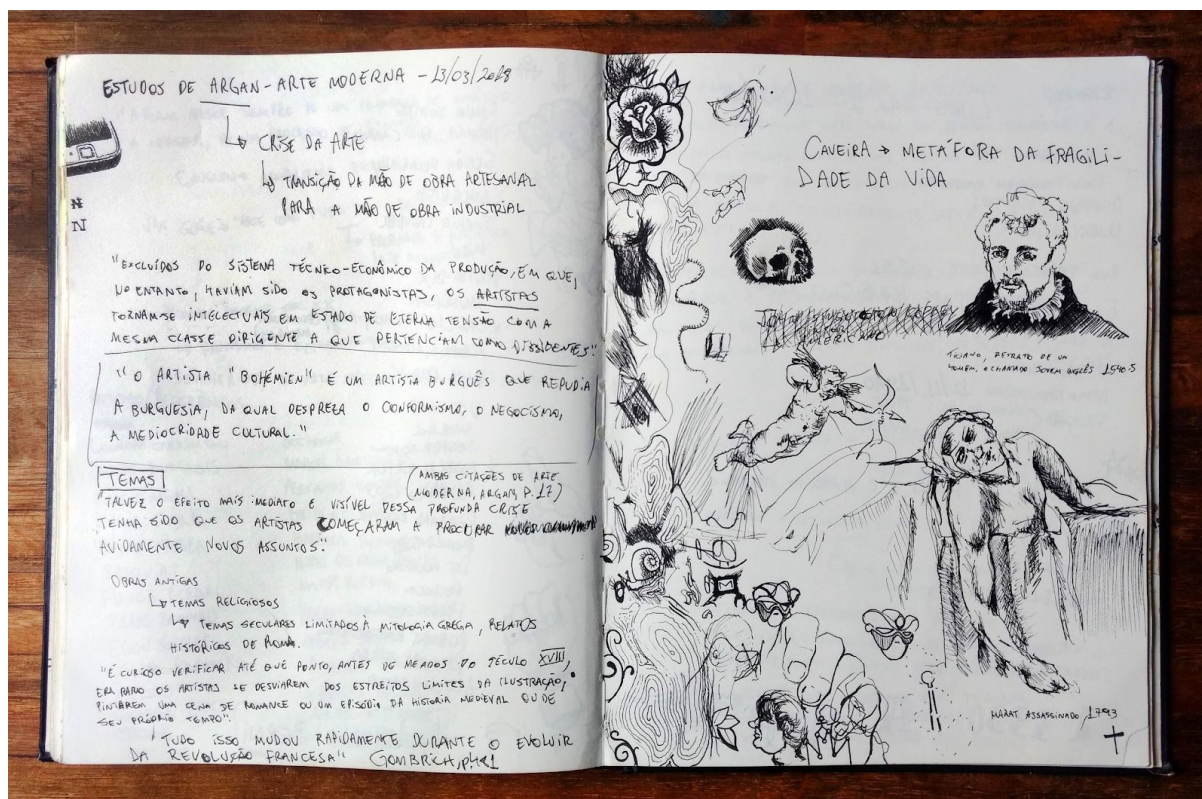 ESTUDOS DE ARGAN - ARTE MODERNA - 13/03/2018
CRISE DA ARTE
TRANSIÇÃO DA MÃO DE OBRA ARTESANAL
PARA A MÃO DE OBRA INDUSTRIAL
N
N
"EXCLUÍDOS DO SISTEMA TÉCNICO-ECONÔMICO DA PRODUÇÃO, EM QUE,
NO ENTANTO, HAVIAM SIDO OS PROTAGONISTAS, OS ARTISTAS
TORNAM-SE INTELECTUAIS EM ESTADO DE ETERNA TENSÃO COM A
MESMA CLASSE DIRIGENTE A QUE PERTENCIAM COMO DISSIDENTES."
"O ARTISTA "BOHÉMIEN" É UM ARTISTA BURGUÊS QUE REPUDIA
A BURGUESIA, DA QUAL DESPREZA O CONFORMISMO, O NEGOCISMO,
A MEDIOCRIDADE CULTURAL."
TEMAS
(AMBAS CITAÇÕES DE ARTE
MODERNA, ARGAN, P. 17)
"TALVEZ O EFEITO MAIS IMEDIATO E VISÍVEL DESSA PROFUNDA CRISE
TENHA SIDO QUE OS ARTISTAS COMEÇARAM A PROCURAR
AVIDAMENTE NOVOS ASSUNTOS."
OBRAS ANTIGAS
TEMAS RELIGIOSOS
TEMAS SECULARES LIMITADOS À MITOLOGIA GREGA, RELATOS
HISTÓRICOS DE ROMA.
"É CURIOSO VERIFICAR ATÉ QUE PONTO, ANTES DE MEADOS DO SÉCULO XVIII,
ERA RARO OS ARTISTAS SE DESVIAREM DOS ESTREITOS LIMITES DA ILUSTRAÇÃO,
PINTAREM UMA CENA DE ROMANCE OU UM EPISÓDIO DA HISTORIA MEDIEVAL OU DE
SEU PRÓPRIO TEMPO".
TUDO ISSO MUDOU RAPIDAMENTE DURANTE O EVOLUIR
DA REVOLUÇÃO FRANCESA" GOMBRICH, P481
CAVEIRA → METÁFORA DA FRAGILI-
DADE DA VIDA
AMERICANO
TICIANO, RETRATO DE UM
HOMEM, O CHAMADO JOVEM INGLÊS 1540-5
MARAT ASSASSINADO 1793